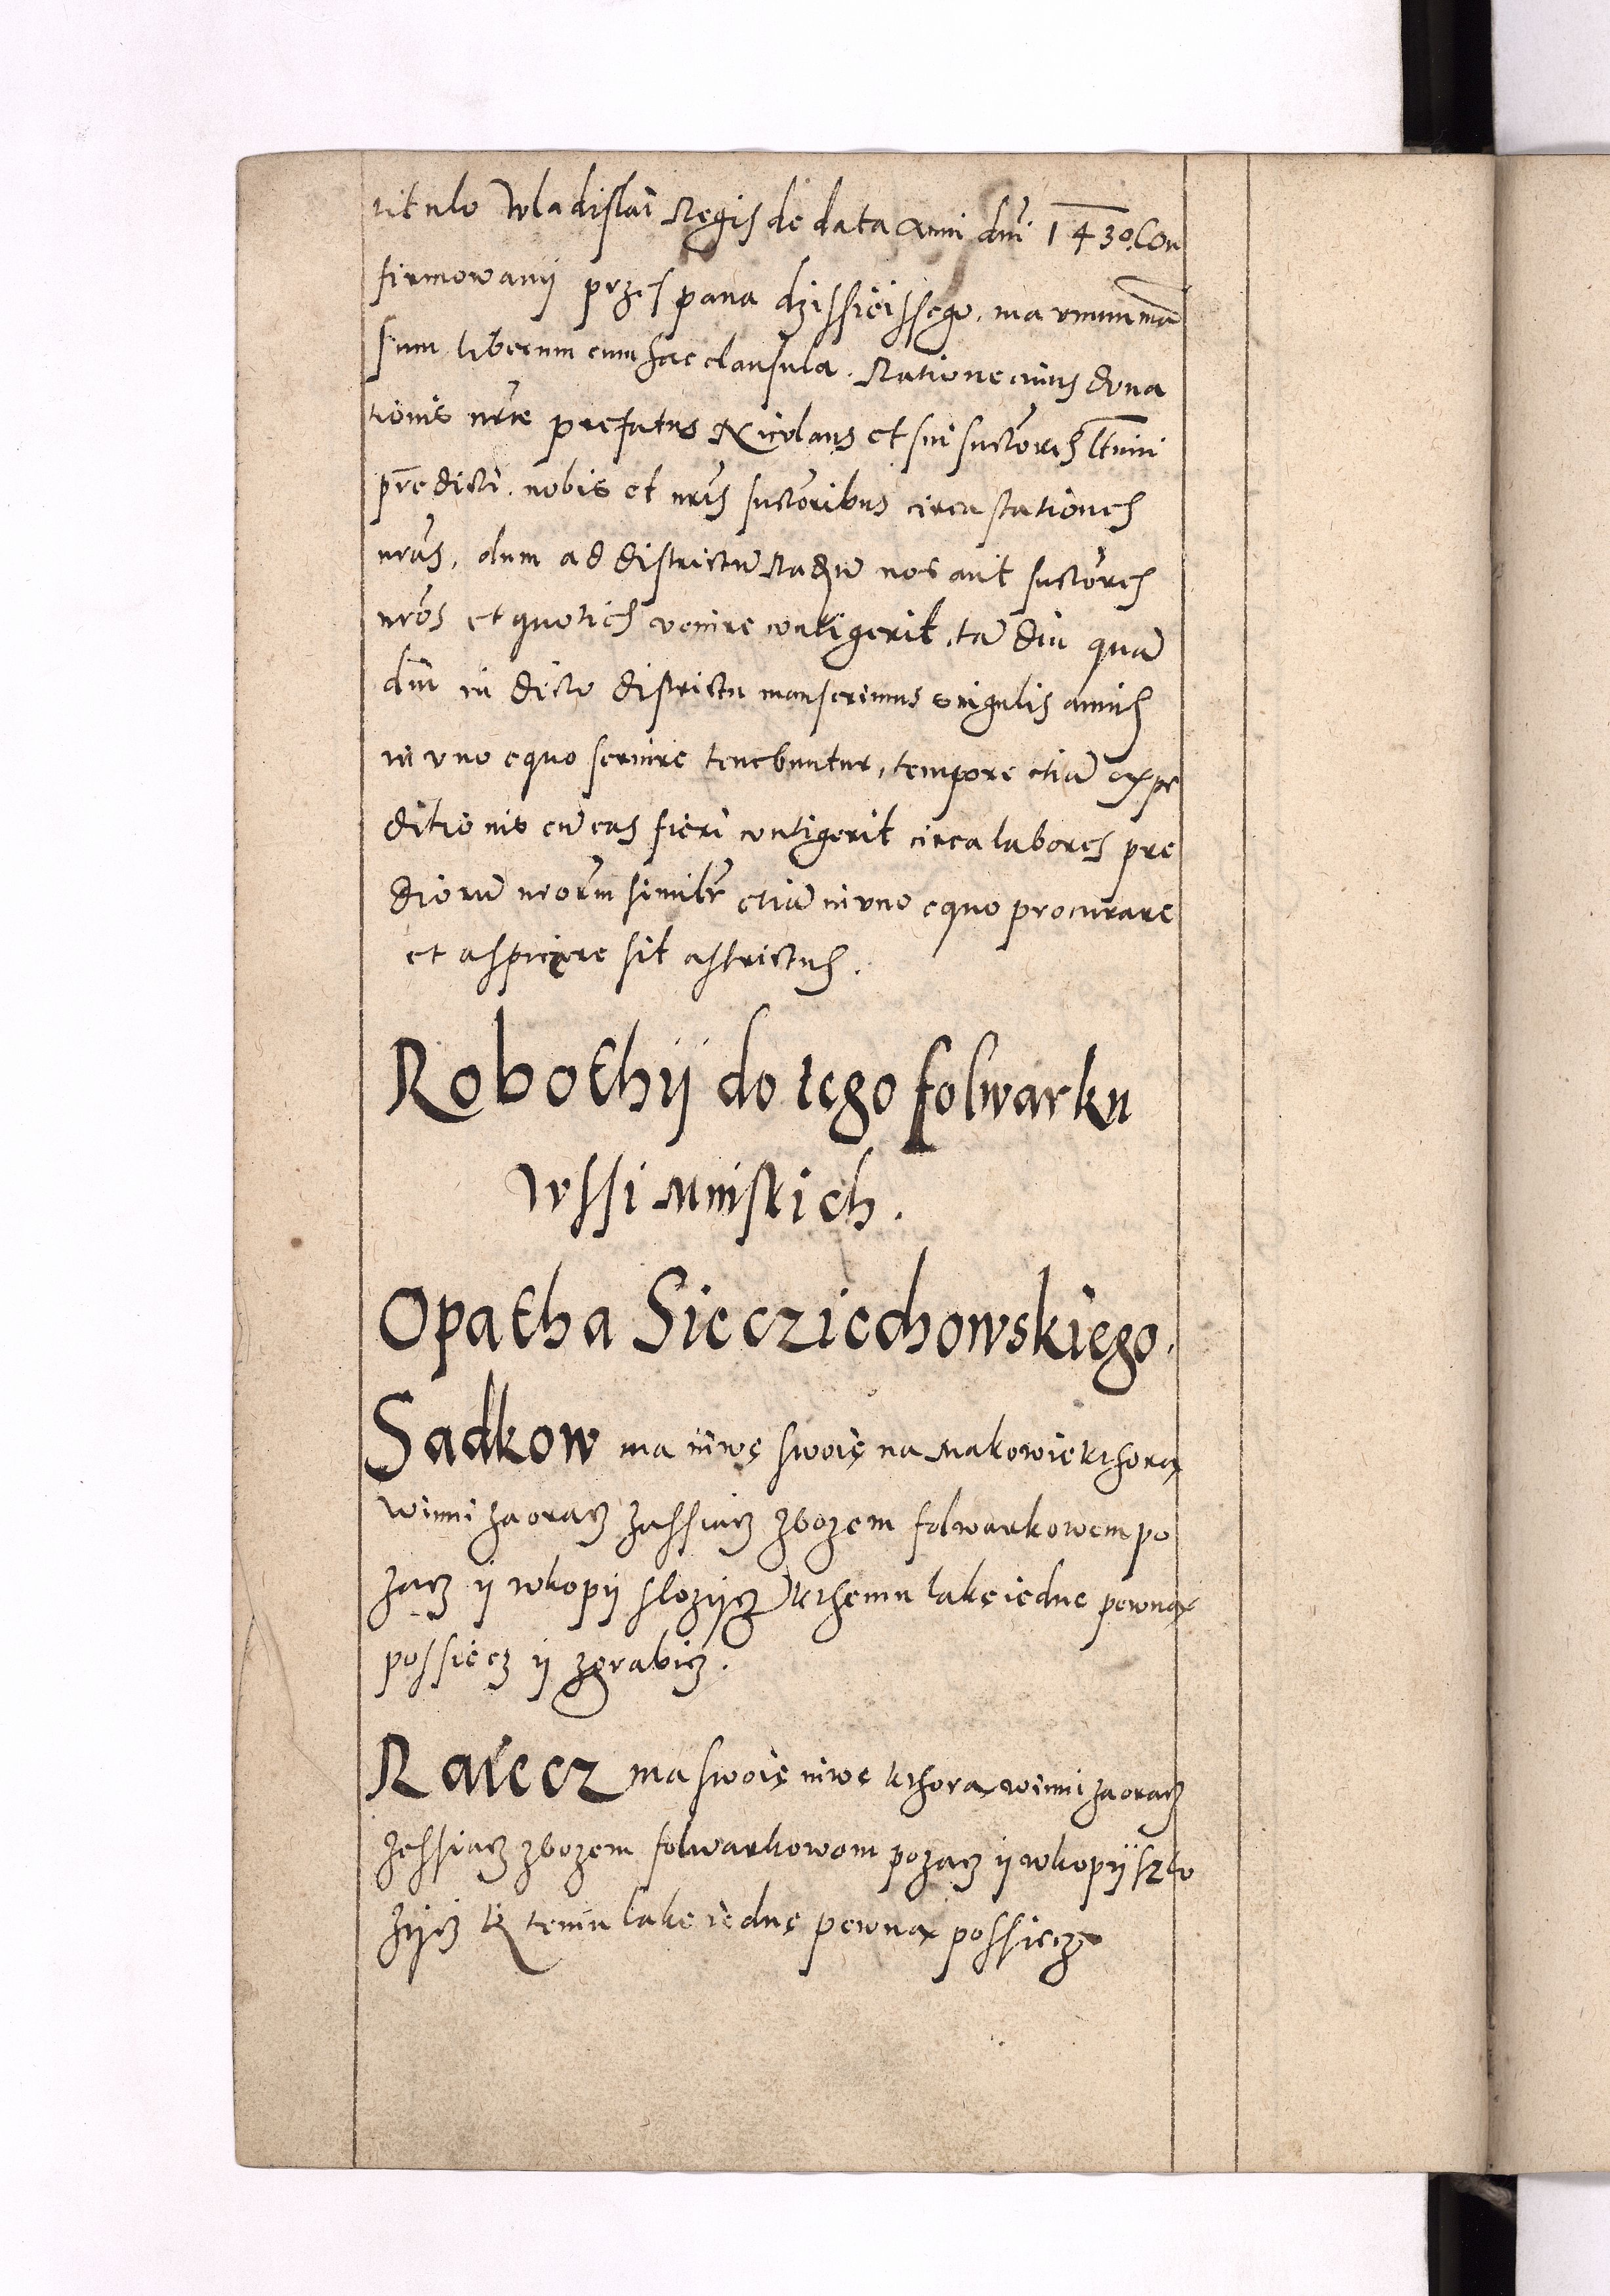 titulo Wladislai Regis de data Anni dni 1430. Con
firmowanÿ przes pana dzissieissego, ma vnum man
sum liberum cum hac clausula. Ratione cuius dona
tionis nrae prefatus Nicolaus et sui suctores ltimi
predicti nobis et nris suctoribus circa stationes
nras, dum ad districtu Radom nos aut suctores
nros et quoties venire contigerit, ta diu qua
diu in dicto districtu manserimus singulis annis
in vno equo seruire tenebuntur, tempore etia expe
ditionis cu eas fieri contigerit circa labores pre
dioru nrorum similr etia in vno equo procurare
et aspicere sit astrictus.
Robothÿ do tego folwarku
Wssi Mniskich.
Opatha Siecziechowskiego.
Sadkow ma niwę swoię na Makowie kthora
winni zaoracz zassiacz zbozem folwarkowem po
zacz ÿ wkopÿ slozÿcz kthemu lakę iednę pewna
possiecz ÿ zgrabicz.
Raiecz ma swoię niwę kthora winni zaoracz
zassiacz zbozem folwarkowem pozacz ÿ wkopÿ szlo
zÿcz K temu lakę iednę pewna possiecz